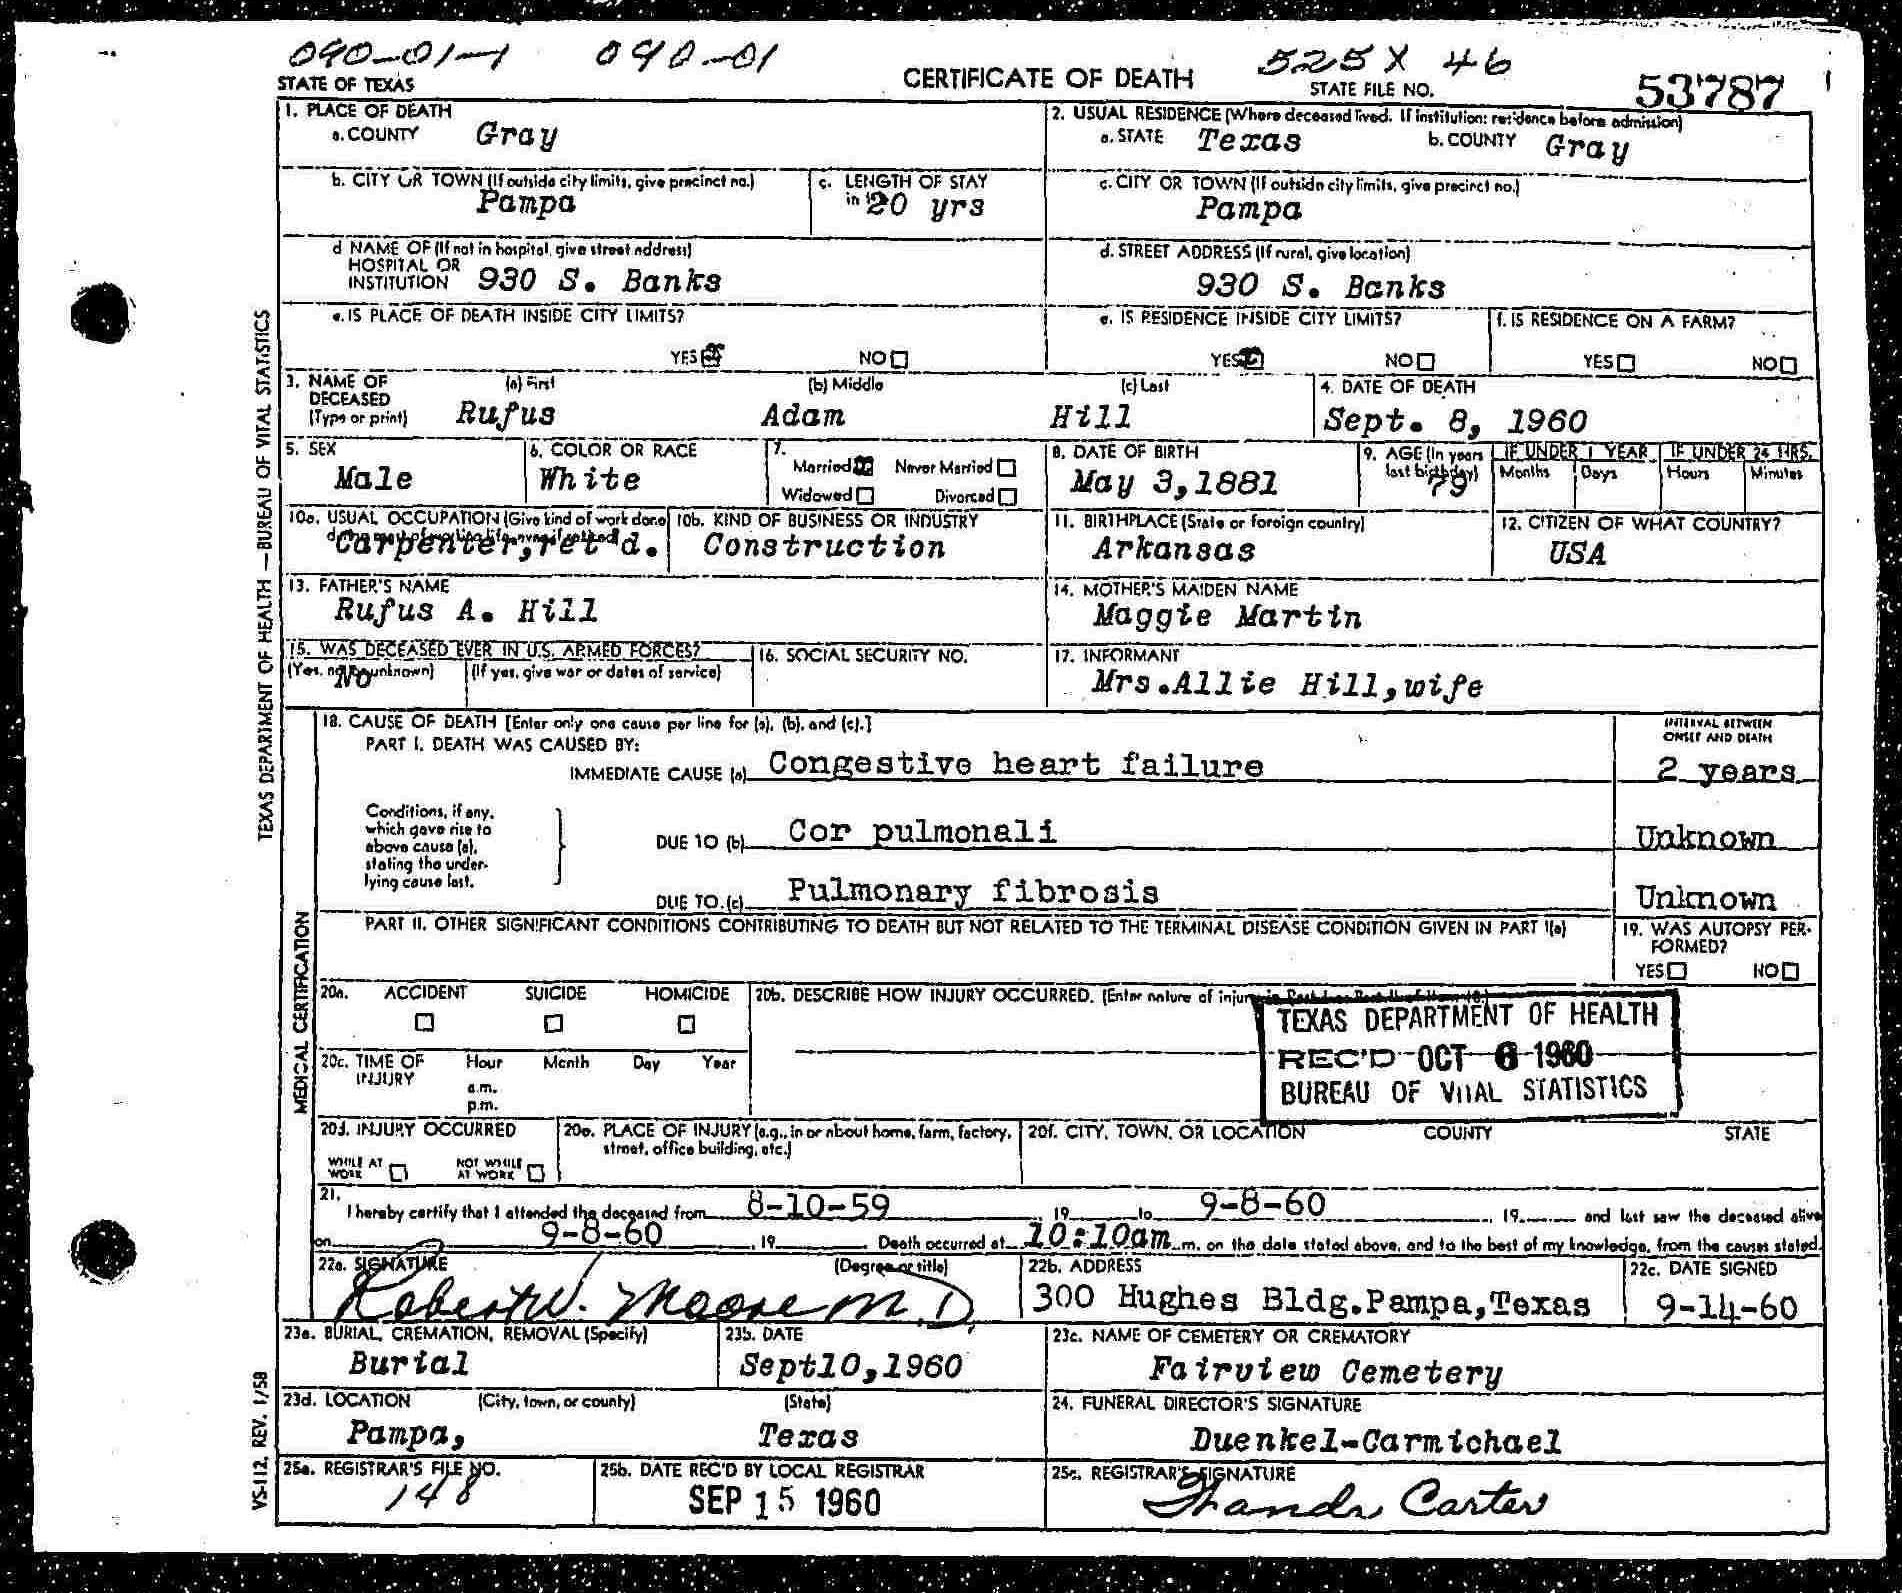 090-01-1 090-01 525X 46
STATE OF TEXAS CERTIFICATE OF DEATH STATE FILE NO. 53787
1. PLACE OF DEATH
a. COUNTY Gray
2. USUAL RESIDENCE (Where deceased lived. If institution: residence before admission)
a. STATE Texas b. COUNTY Gray
b. CITY OR TOWN (If outside city limits, give precinct no.)
Pampa
c. LENGTH OF STAY
in 20 yrs
c. CITY OR TOWN (If outside city limits, give precinct no.)
Pampa
d NAME OF (If not in hospital, give street address)
HOSPITAL OR
INSTITUTION 930 S. Banks
d. STREET ADDRESS (If rural, give location)
930 S. Banks
e. IS PLACE OF DEATH INSIDE CITY LIMITS?
YES NO
e. IS RESIDENCE INSIDE CITY LIMITS?
YES NO
f. IS RESIDENCE ON A FARM?
YES NO
3. NAME OF
DECEASED
(Type or print)
(a) First (b) Middle (c) Last
Rufus Adam Hill
4. DATE OF DEATH
Sept. 8, 1960
5. SEX
Male
6. COLOR OR RACE
White
7.
Married Never Married
Widowed Divorced
8. DATE OF BIRTH
May 3,1881
9. AGE (In years
last birthday)
79
IF UNDER 1 YEAR IF UNDER 24 HRS.
Months Days Hours Minutes
10a. USUAL OCCUPATION (Give kind of work done
during most of working life, even if retired)
Carpenter,ret'd.
10b. KIND OF BUSINESS OR INDUSTRY
Construction
11. BIRTHPLACE (State or foreign country)
Arkansas
12. CITIZEN OF WHAT COUNTRY?
USA
13. FATHER'S NAME
Rufus A. Hill
14. MOTHER'S MAIDEN NAME
Maggie Martin
15. WAS DECEASED EVER IN U.S. ARMED FORCES?
(Yes, no, or unknown) (If yes, give war or dates of service)
No
16. SOCIAL SECURITY NO.
17. INFORMANT
Mrs.Allie Hill,wife
18. CAUSE OF DEATH [Enter only one cause per line for (a), (b), and (c).]
PART I. DEATH WAS CAUSED BY:
INTERVAL BETWEEN
ONSET AND DEATH
IMMEDIATE CAUSE (a) Congestive heart failure 2 years
Conditions, if any,
which gave rise to
above cause (a),
stating the under-
lying cause last.
DUE TO (b) Cor pulmonali Unknown
DUE TO (c) Pulmonary fibrosis Unknown
PART II. OTHER SIGNIFICANT CONDITIONS CONTRIBUTING TO DEATH BUT NOT RELATED TO THE TERMINAL DISEASE CONDITION GIVEN IN PART I(a)
19. WAS AUTOPSY PER-
FORMED?
YES NO
20a. ACCIDENT SUICIDE HOMICIDE
20b. DESCRIBE HOW INJURY OCCURRED. (Enter nature of injury in Part I or Part II of Item 18.)
TEXAS DEPARTMENT OF HEALTH
REC'D OCT 6 1960
BUREAU OF VITAL STATISTICS
20c. TIME OF
INJURY
Hour Month Day Year
a.m.
p.m.
20d. INJURY OCCURRED
WHILE AT
WORK
NOT WHILE
AT WORK
20e. PLACE OF INJURY (e.g., in or about home, farm, factory,
street, office building, etc.)
20f. CITY, TOWN, OR LOCATION COUNTY STATE
21.
I hereby certify that I attended the deceased from 8-10-59 19 to 9-8-60 , 19 and last saw the deceased alive
on 9-8-60 , 19 . Death occurred at 10:10am m. on the date stated above, and to the best of my knowledge, from the causes stated.
22a. SIGNATURE (Degree or title)
Robert W. Moore M.D.
22b. ADDRESS
300 Hughes Bldg.Pampa,Texas
22c. DATE SIGNED
9-14-60
23a. BURIAL, CREMATION, REMOVAL (Specify)
Burial
23b. DATE
Sept10,1960
23c. NAME OF CEMETERY OR CREMATORY
Fairview Cemetery
23d. LOCATION (City, town, or county) (State)
Pampa, Texas
24. FUNERAL DIRECTOR'S SIGNATURE
Duenkel-Carmichael
25a. REGISTRAR'S FILE NO.
148
25b. DATE REC'D BY LOCAL REGISTRAR
SEP 15 1960
25c. REGISTRAR'S SIGNATURE
Carter
TEXAS DEPARTMENT OF HEALTH — BUREAU OF VITAL STATISTICS
MEDICAL CERTIFICATION
VS-112, REV. 1/58